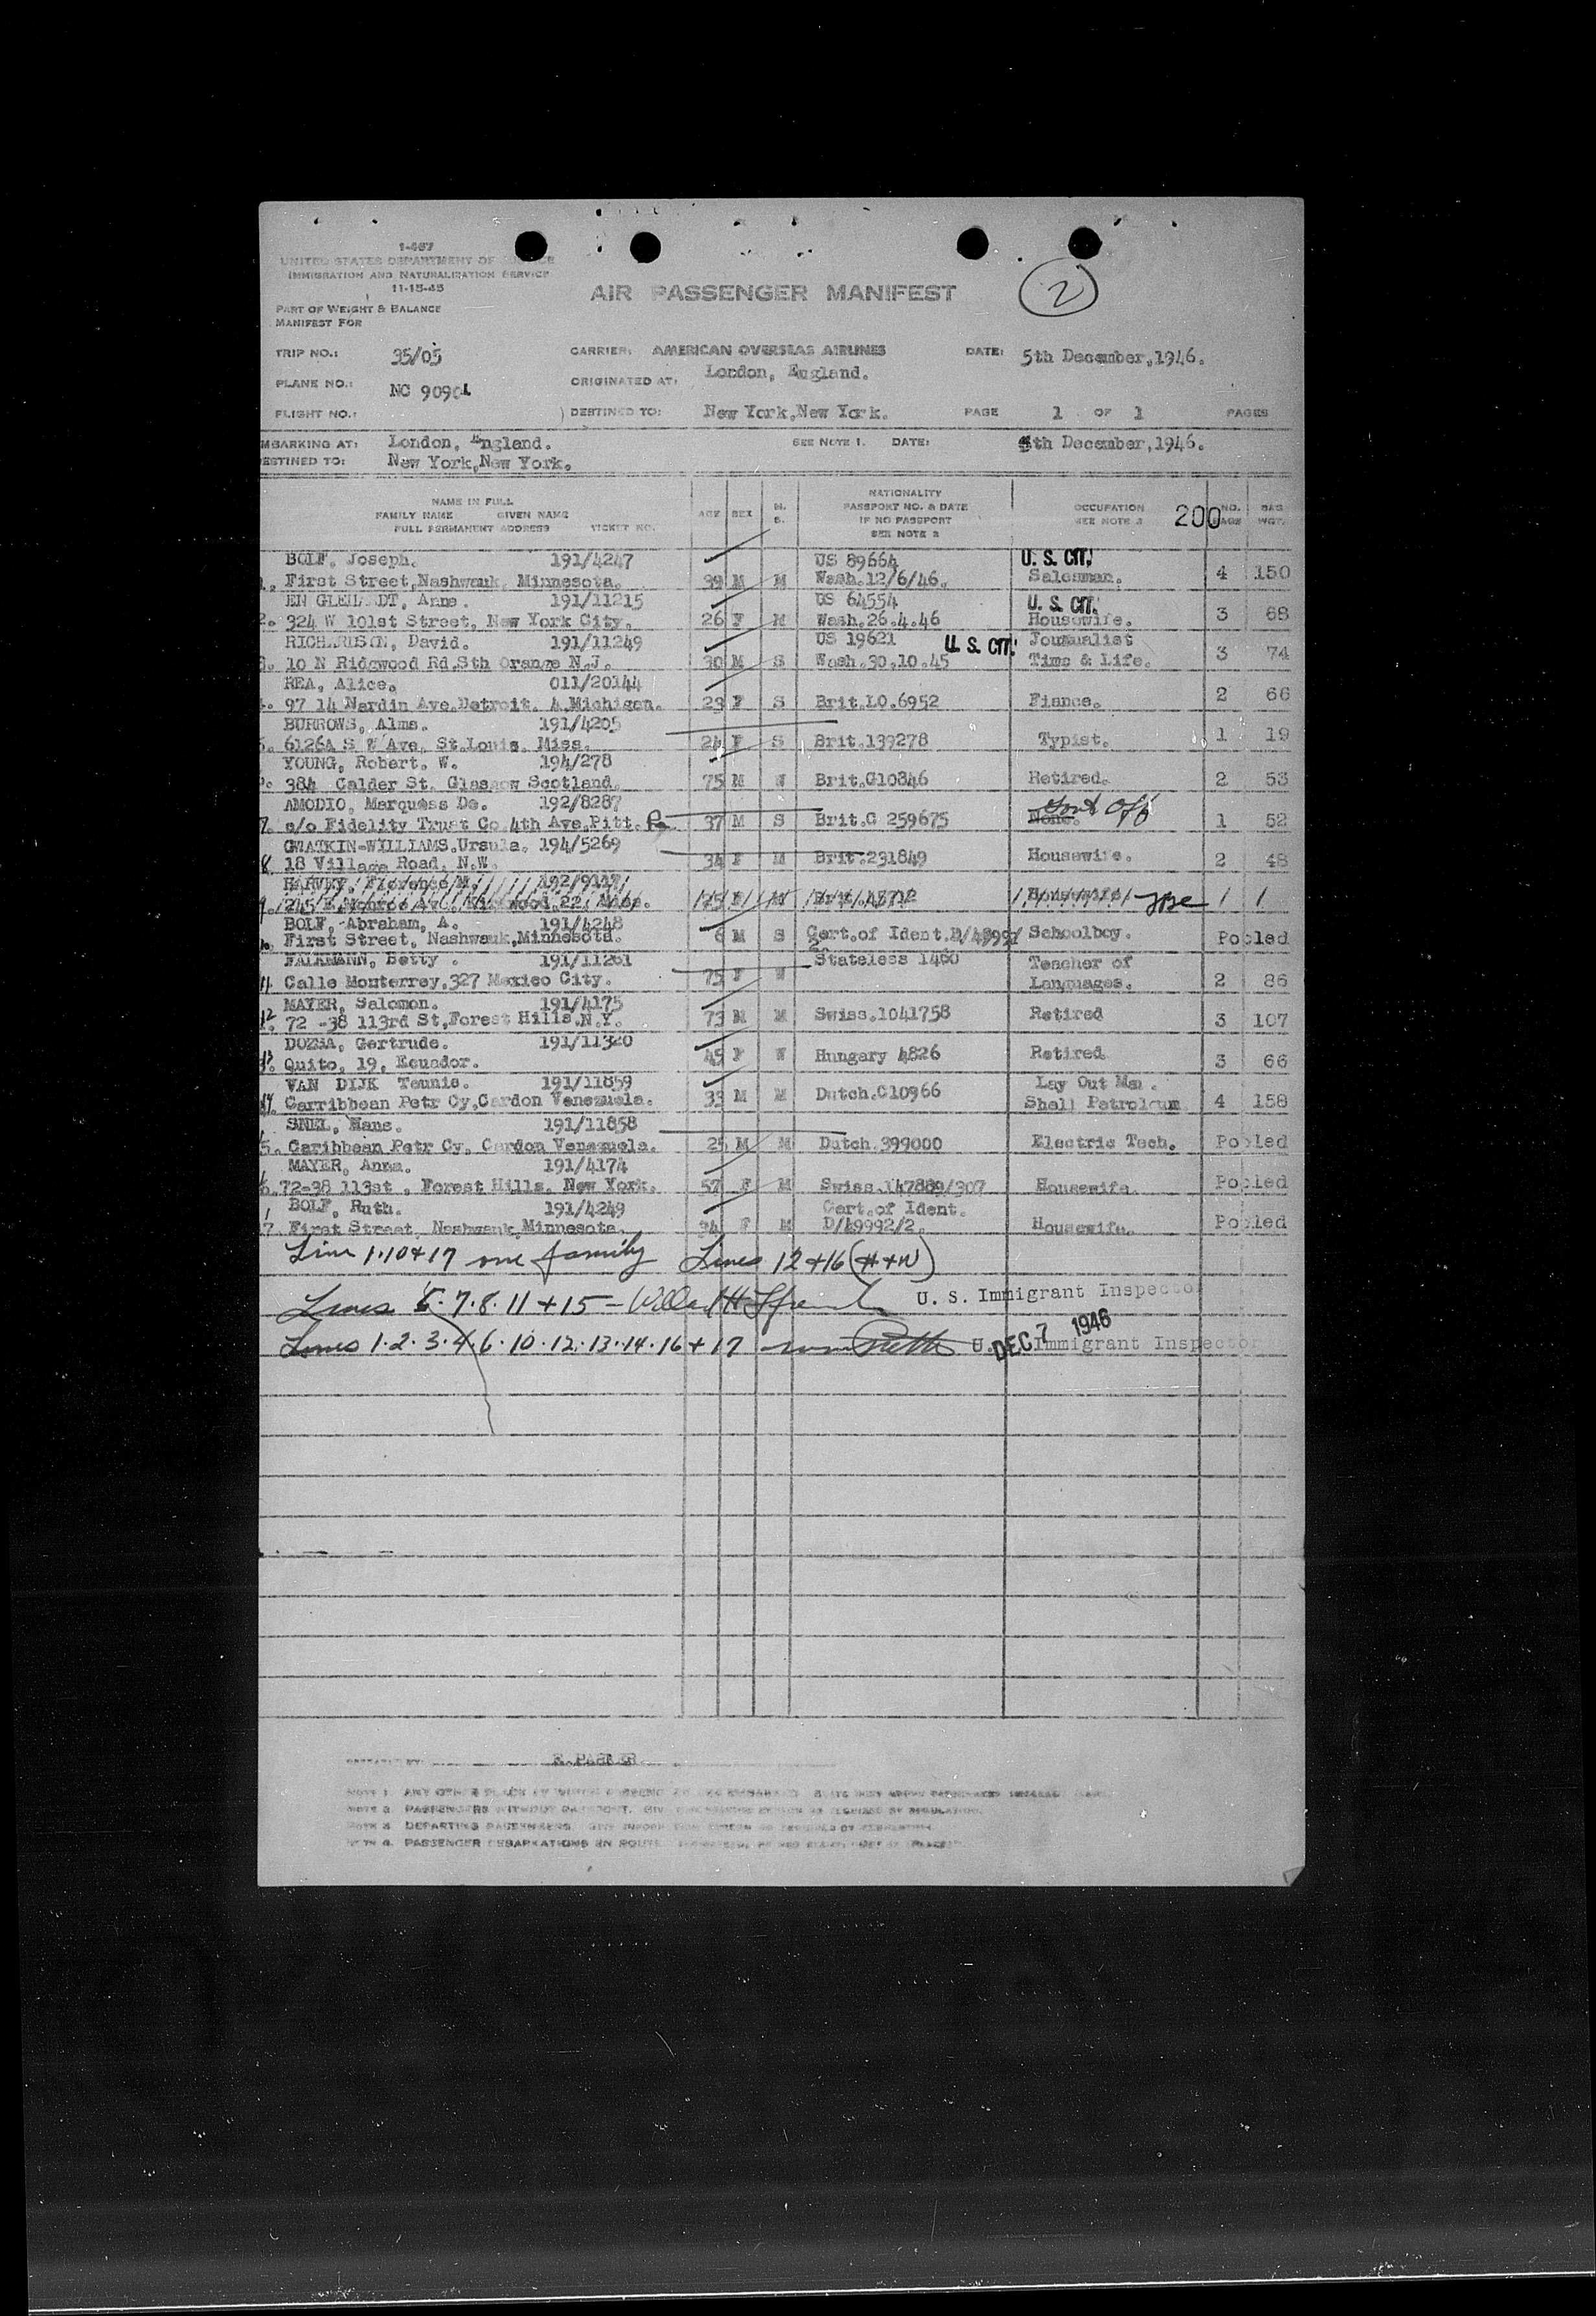 1-467
UNITED STATES DEPARTMENT OF JUSTICE
IMMIGRATION AND NATURALIZATION SERVICE
11-15-45
AIR PASSENGER MANIFEST
2
PART OF WEIGHT & BALANCE
MANIFEST FOR
TRIP NO.: 35/05 CARRIER: AMERICAN OVERSEAS AIRLINES DATE: 5th December,1946.
PLANE NO.: NC 90904 ORIGINATED AT: London, England.
FLIGHT NO.: DESTINED TO: New York,New York. PAGE 1 OF 1 PAGES
MBARKING AT: London, England. SEE NOTE 1. DATE: 4th December,1946.
ESTINED TO: New York,New York.
NAME IN FULL
FAMILY NAME GIVEN NAME
FULL PERMANENT ADDRESS TICKET NO.
AGE SEX M. S.
NATIONALITY
PASSPORT NO. & DATE
IF NO PASSPORT
SEE NOTE 2
OCCUPATION
SEE NOTE 3
200
NO. BAGS BAG WGT.
BOLF, Joseph. 191/4247 US 89664 U. S. CIT.
1. First Street,Nashwauk, Minnesota. 39 M M Wash.12/6/46. Salesman. 4 150
191/11215 US 64554 U. S. CIT.
2. 324 W 101st Street, New York City. 26 F M Wash.26.4.46 Housewife. 3 68
RICHARDSON, David. 191/11249 US 19621 U. S. CIT. Journalist
3. 10 N Ridgwood Rd,Sth Orange N.J. 30 M S Wash.30.10.45 Time & Life. 3 74
REA, Alice. 011/20144
4. 97 14 Nardin Ave.Detroit. 4,Michigan. 23 F S Brit.LO.6952 Fiance. 2 66
BURROWS, Alma. 191/4205
5. 6126A S W Ave, St.Louis, Miss. 24 F S Brit.139278 Typist. 1 19
YOUNG, Robert. W. 194/278
6. 384 Calder St. Glasgow Scotland. 75 M W Brit.G10846 Retired. 2 53
AMODIO, Marquess De. 192/8287
7. c/o Fidelity Trust Co.4th Ave.Pitt. Pa 37 M S Brit.C 259675 None. Govt Off 1 52
GWATKIN-WILLIAMS.Ursula. 194/5269
8. 18 Village Road, N.W. 34 F M Brit.231849 Housewife. 2 48
HARVEY, Florence M. 192/9117
9. 245 E.Monroe Av. Kirkwood.22, Miss. Housewife.
BOLF, Abraham, A. 191/4248
10. First Street, Nashwauk,Minnesota. 6 M S Cert.of Ident.D/49991 Schoolboy. Pooled
Betty . 191/11261 Stateless 1460 Teacher of
11 Calle Monterrey,327 Mexico City. 75 F W Languages. 2 86
MAYER, Salomon. 191/4175
12. 72 -38 113rd St,Forest Hills,N.Y. 73 M M Swiss.1041758 Retired 3 107
DOZSA, Gertrude. 191/11320
13. Quito, 19, Ecuador. 45 F W Hungary 4826 Retired 3 66
VAN DIJK Teunis. 191/11859 Lay Out Man.
14. Carribbean Petr Cy,Cardon Venezuela. 33 M M Dutch.C10966 Shell Petroleum 4 158
SNEL, Hans. 191/11858
15. Caribbean Petr Cy, Cardon Venezuela. 25 M M Dutch.399000 Electric Tech. Pooled
MAYER, Anna. 191/4174
16. 72-38 113st , Forest Hills, New York. 57 F M Swiss.147889/307 Housewife. Pooled
BOLF, Ruth. 191/4249 Cert.of Ident.
17. First Street, Nashwauk,Minnesota. 34 F M D/49992/2. Housewife. Pooled
Line 1·10+17 one family Lines 12+16 (H+W)
Lines 5·7·8·11+15 — U. S. Immigrant Inspector
Lines 1·2·3·4·6·10·12·13·14·16+17 U. S. Immigrant Inspector
DEC 7 1946
PREPARED BY: E.PARKER.
NOTE 2. PASSENGERS WITHOUT PASSPORT,
NOTE 3. DEPARTING PASSENGERS
NOTE 4. PASSENGER DEBARKATIONS EN ROUTE